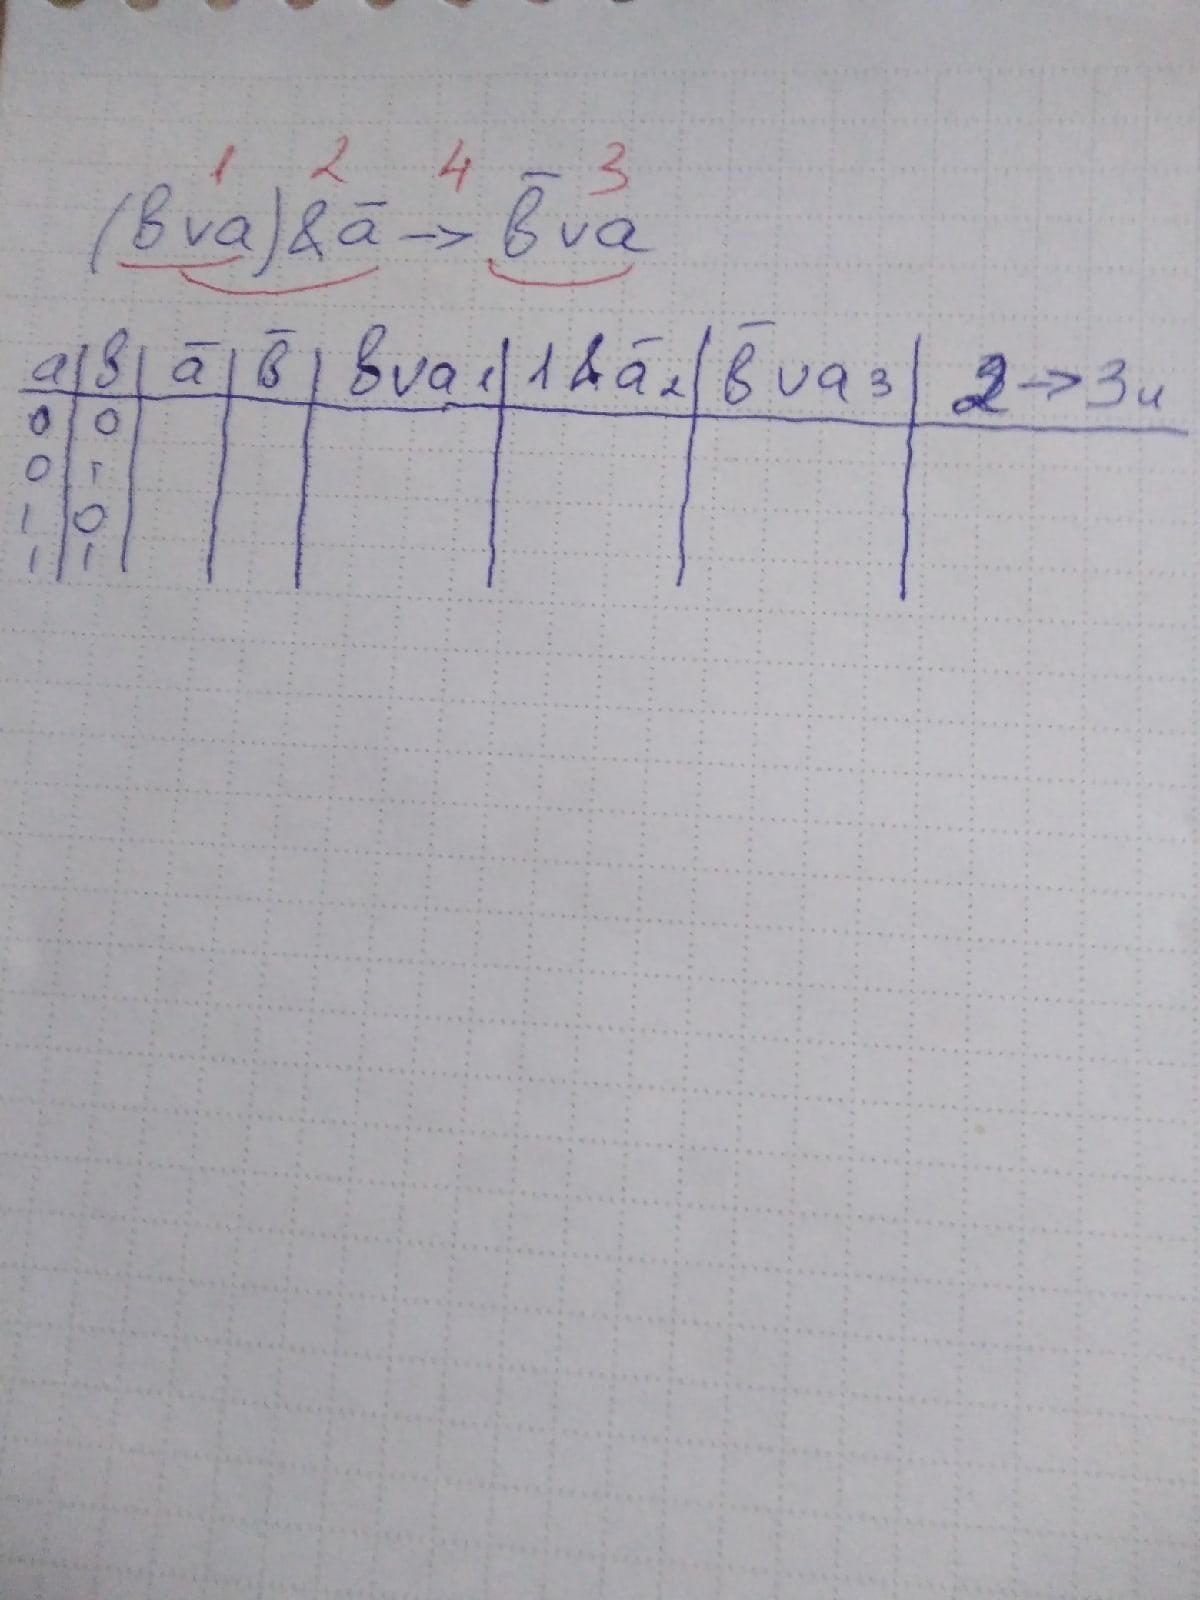 1 2 4 3
(в v a) & ā → в̄ v a
a | в | ā | в̄ | в v a 1 | 1 & ā 2 | в̄ v a 3 | 2 → 3 4
0 | 0
0 | 1
1 | 0
1 | 1